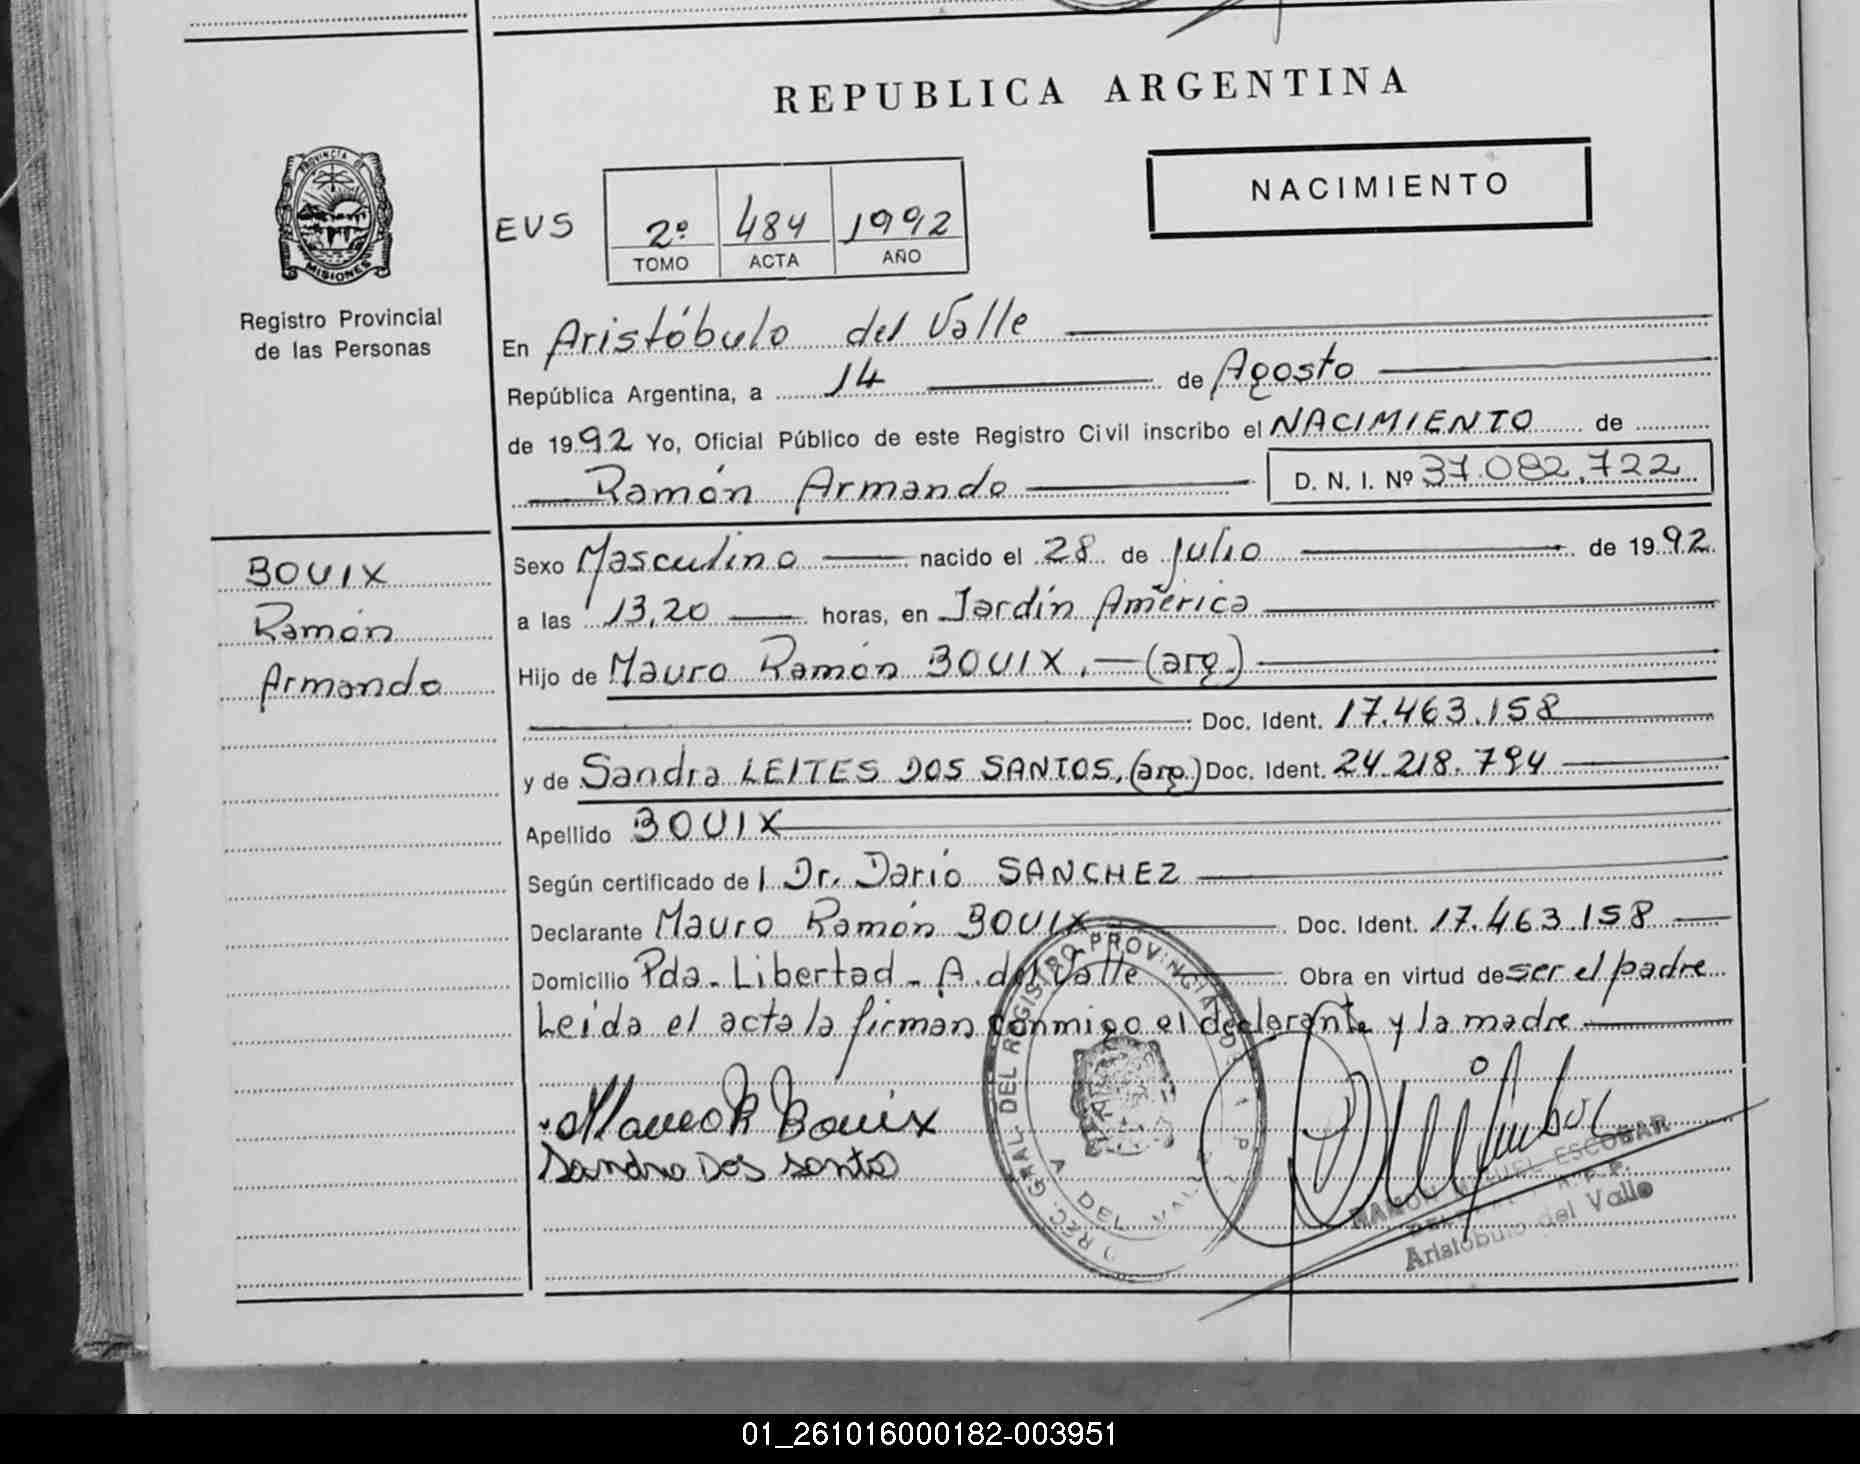 REPUBLICA ARGENTINA
NACIMIENTO
PROVINCIA DE
MISIONES
Registro Provincial
de las Personas
EVS 2º 484 1992
TOMO ACTA AÑO
En Aristóbulo del Valle
República Argentina, a 14 de Agosto
de 1992 Yo, Oficial Público de este Registro Civil inscribo el NACIMIENTO de
Ramón Armando D. N. I. Nº 37.082.722
BOUIX
Ramón
Armando
Sexo Masculino nacido el 28 de Julio de 1992.
a las 13,20 horas, en Jardín América
Hijo de Mauro Ramón BOUIX. (arg.)
Doc. Ident. 17.463.158
y de Sandra LEITES DOS SANTOS. (arg.) Doc. Ident. 24.218.794
Apellido BOUIX
Según certificado del Dr. Darío SANCHEZ
Declarante Mauro Ramón BOUIX Doc. Ident. 17.463.158
Domicilio Pda. Libertad - A. del Valle Obra en virtud de ser el padre
Leída el acta la firman conmigo el declarante y la madre
Mauro R Bouix
Sandra Dos Santo
DEL REGISTRO PROVINCIAL DE
DEL VALLE
RAMON MIGUEL ESCOBAR
Aristóbulo del Valle
01_261016000182-003951